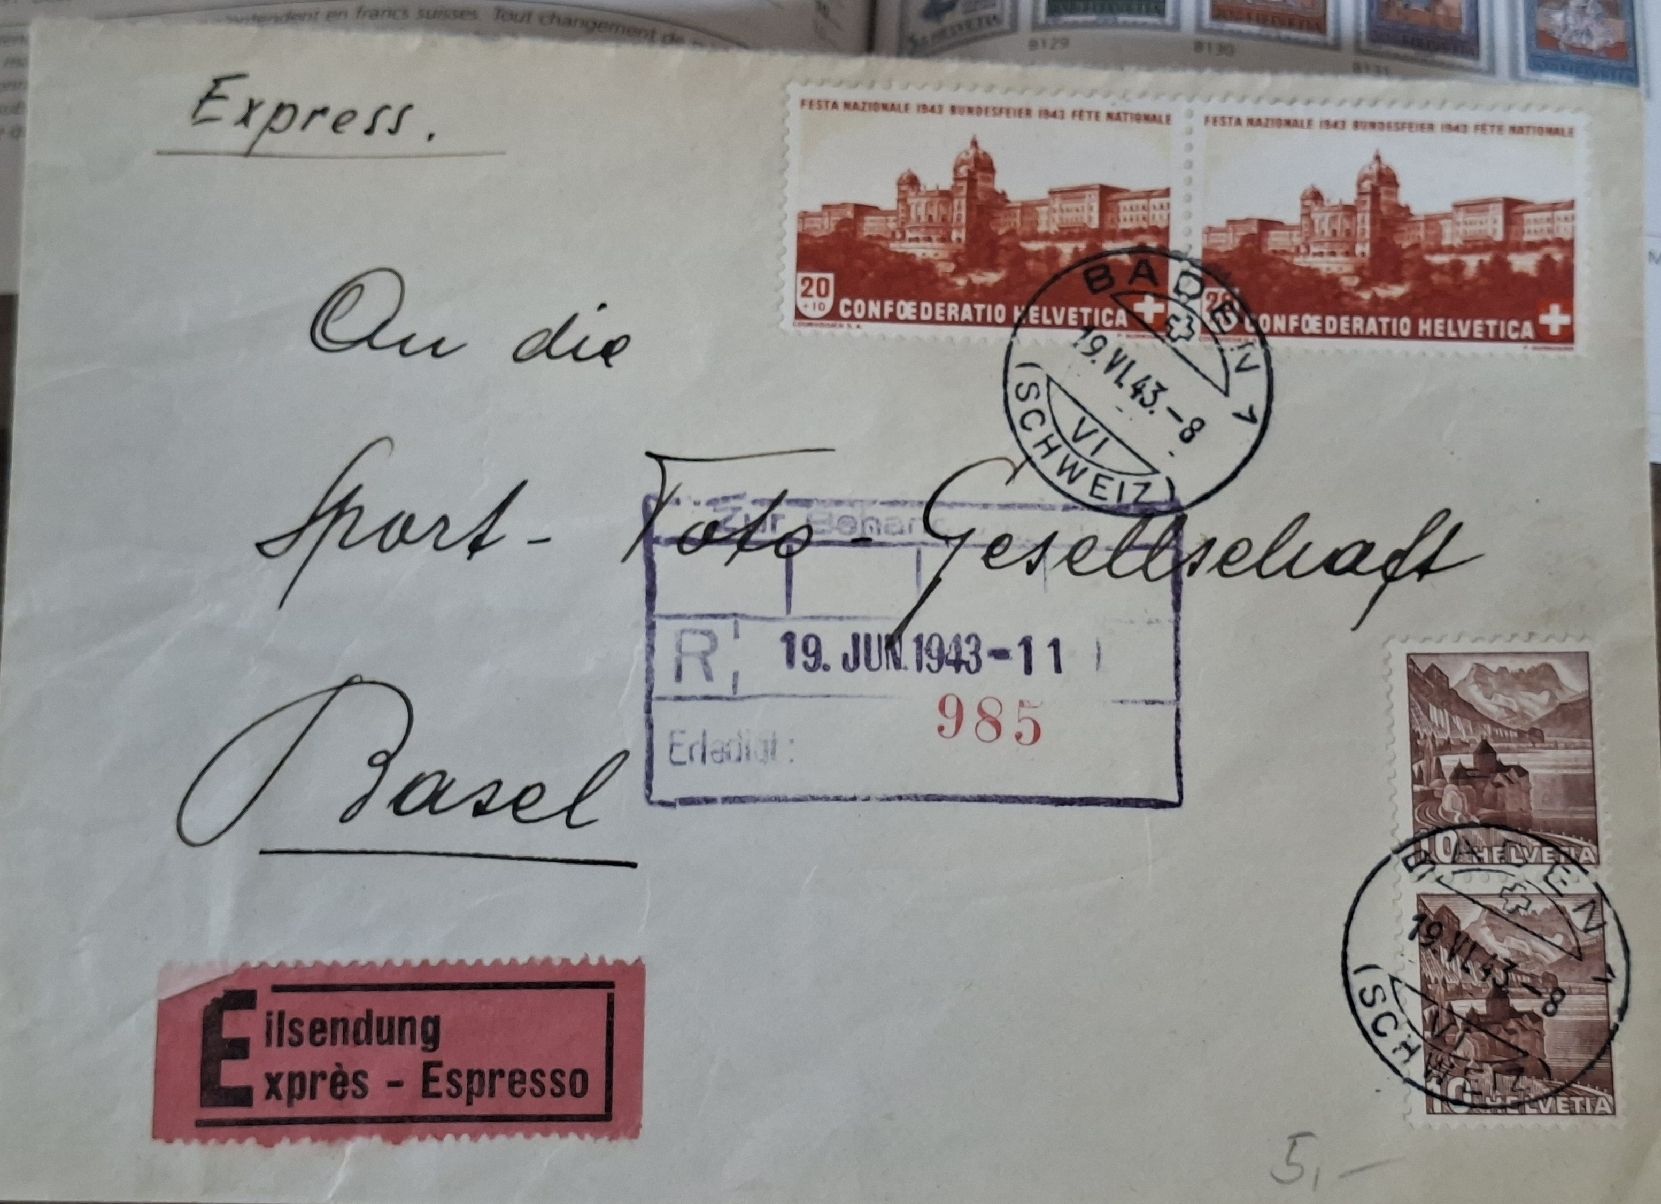 entendent en francs suisses. Tout changement de
HELVETIA
B129
B130
B131
Express.
FESTA NAZIONALE 1943 BUNDESFEIER 1943 FÊTE NATIONALE
20
+10
CONFŒDERATIO HELVETICA
COURVOISIER S.A.
FESTA NAZIONALE 1943 BUNDESFEIER 1943 FÊTE NATIONALE
20
CONFŒDERATIO HELVETICA
BADEN 1
19.VI.43.-8
VI
(SCHWEIZ)
An die
Sport-Foto-Gesellschaft
Basel
Zur
R
19. JUN. 1943-11
985
Erledigt:
10 HELVETIA
10 HELVETIA
BADEN 1
19.VI.43.-8
VI
(SCHWEIZ)
Eilsendung
Exprès - Espresso
5,-